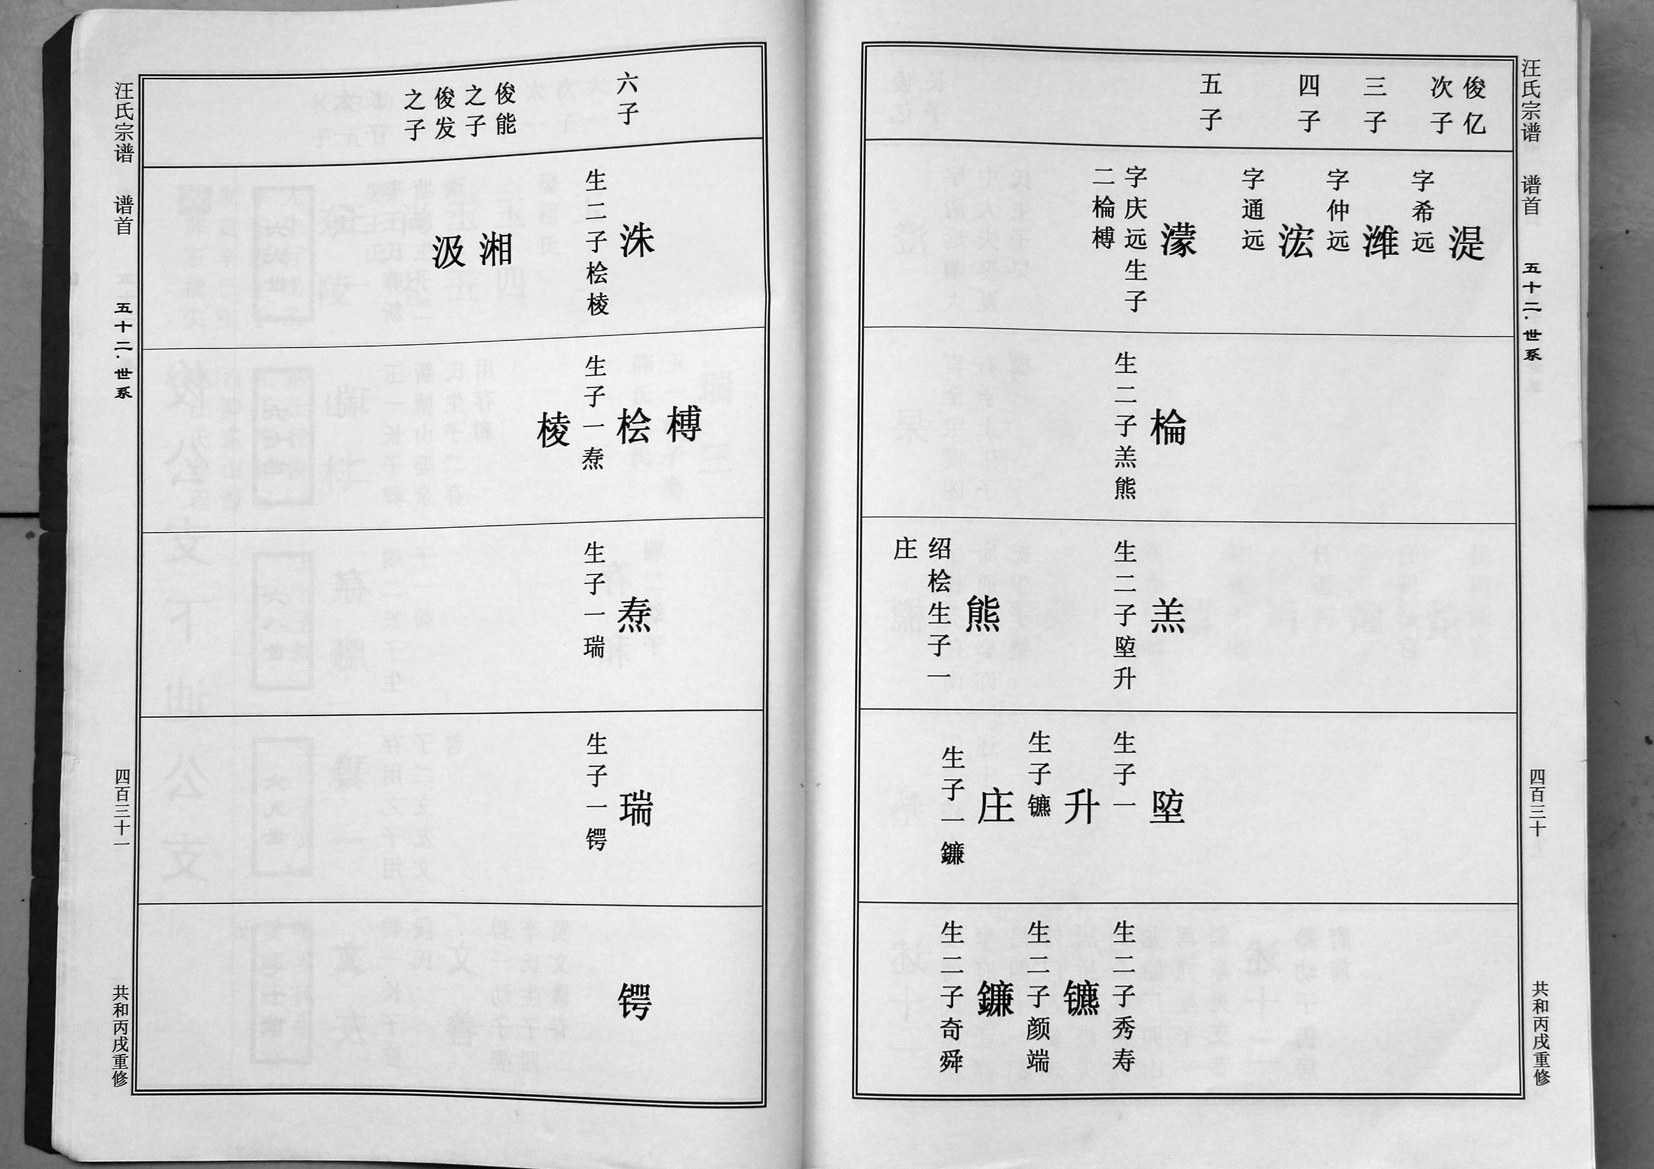 汪氏宗谱 谱首 五十二·世系 四百三十 共和丙戌重修
俊亿
次子
三子
四子
五子
湜
字希远
潍
字仲远
浤
字通远
濛
字庆远生子
二棆榑
棆
生二子羔熊
羔
生二子埅升
熊
绍桧生子一
庄
埅
生子一
升
生子镳
庄
生子一鐮
生二子秀寿
镳
生二子颜端
鐮
生二子奇舜
六子
俊能
之子
俊发
之子
洙
生二子桧棱
湘
汲
榑
桧
生子一焘
棱
焘
生子一瑞
瑞
生子一锷
锷
汪氏宗谱 谱首 五十二·世系 四百三十一 共和丙戌重修